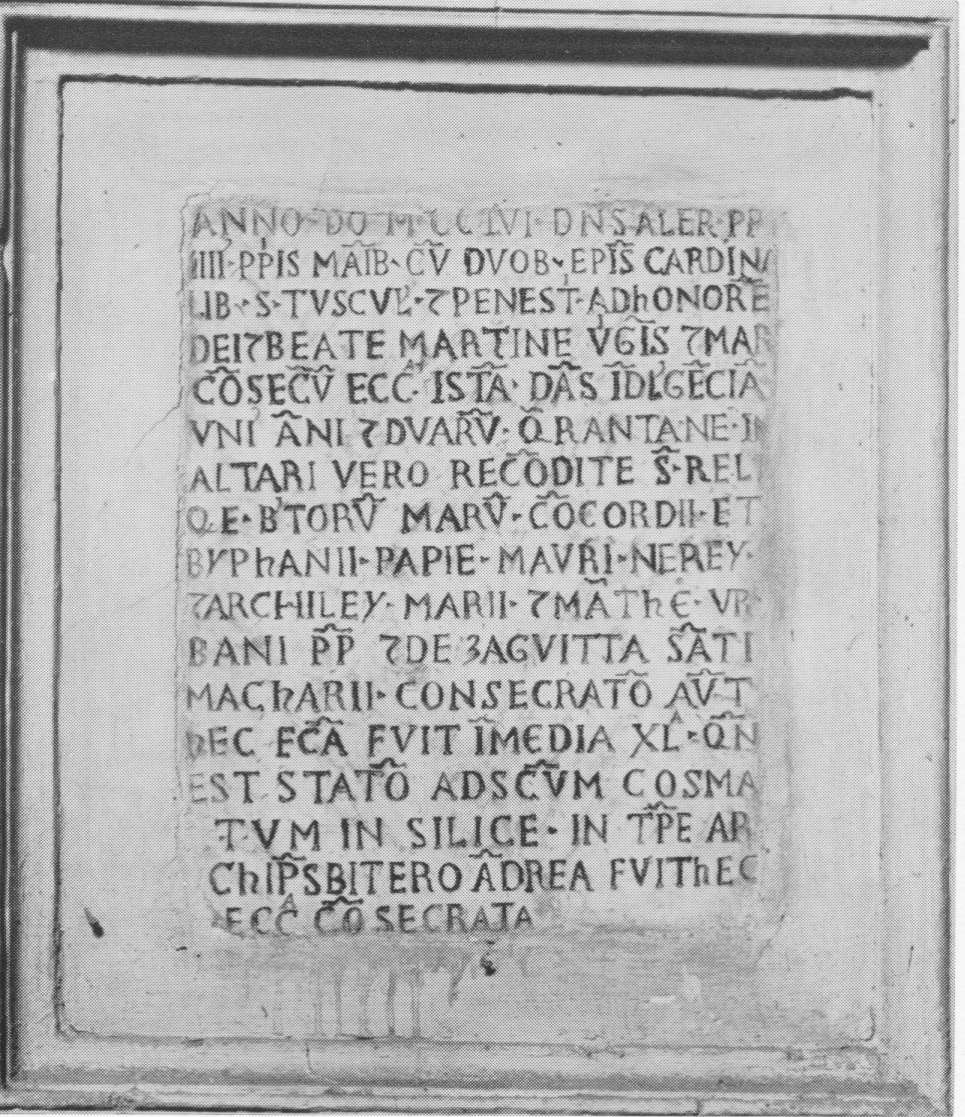 ANNO · DO · M · CC LVI · DNS ALER · PP
IIII · PPIS MAIB · CV DVOB · EPIS CARDINA
LIB · S · TVSCVL · ⁊ PENEST · ADhONORE
DEI ⁊ BEATE MARTINE VGIS ⁊ MAR
COSECV ECC · ISTA · DAS IDLGECIA
VNI ANI ⁊ DVARV · QRANTANE · IN
ALTARI VERO RECODITE S · REL
QE · BTORV MARV · COCORDII · ET
BYPhANII · PAPIE · MAVRI · NEREY ·
⁊ ARCHILEY · MARII · ⁊ MAThE · VR
BANI PP ⁊ DE ZAGVITTA SATI
MAChARII · CONSECRATO AVT
hEC FCA FVIT IMEDIA XL · QN
EST STATO ADSCVM COSMA
TVM IN SILICE · IN TPE AR
ChIPSBITERO ADREA FVIT hEC
ECCA COSECRATA